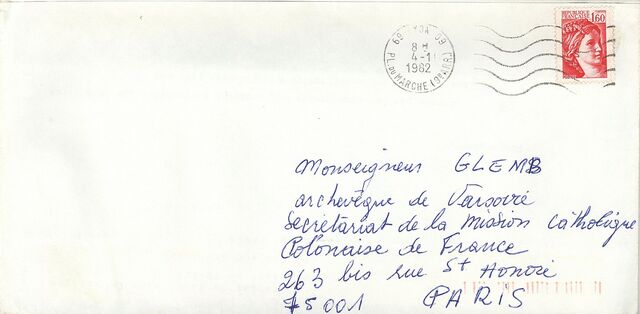 69 LYON 69
8 H
4-1
1982
PL. DU MARCHE (QUARRE)
REPUBLIQUE FRANCAISE
1,60
Monseigneur GLEMB
archevêque de Varsovie
Secrétariat de la Mission Catholique
Polonaise de France
263 bis rue St Honoré
75001 PARIS